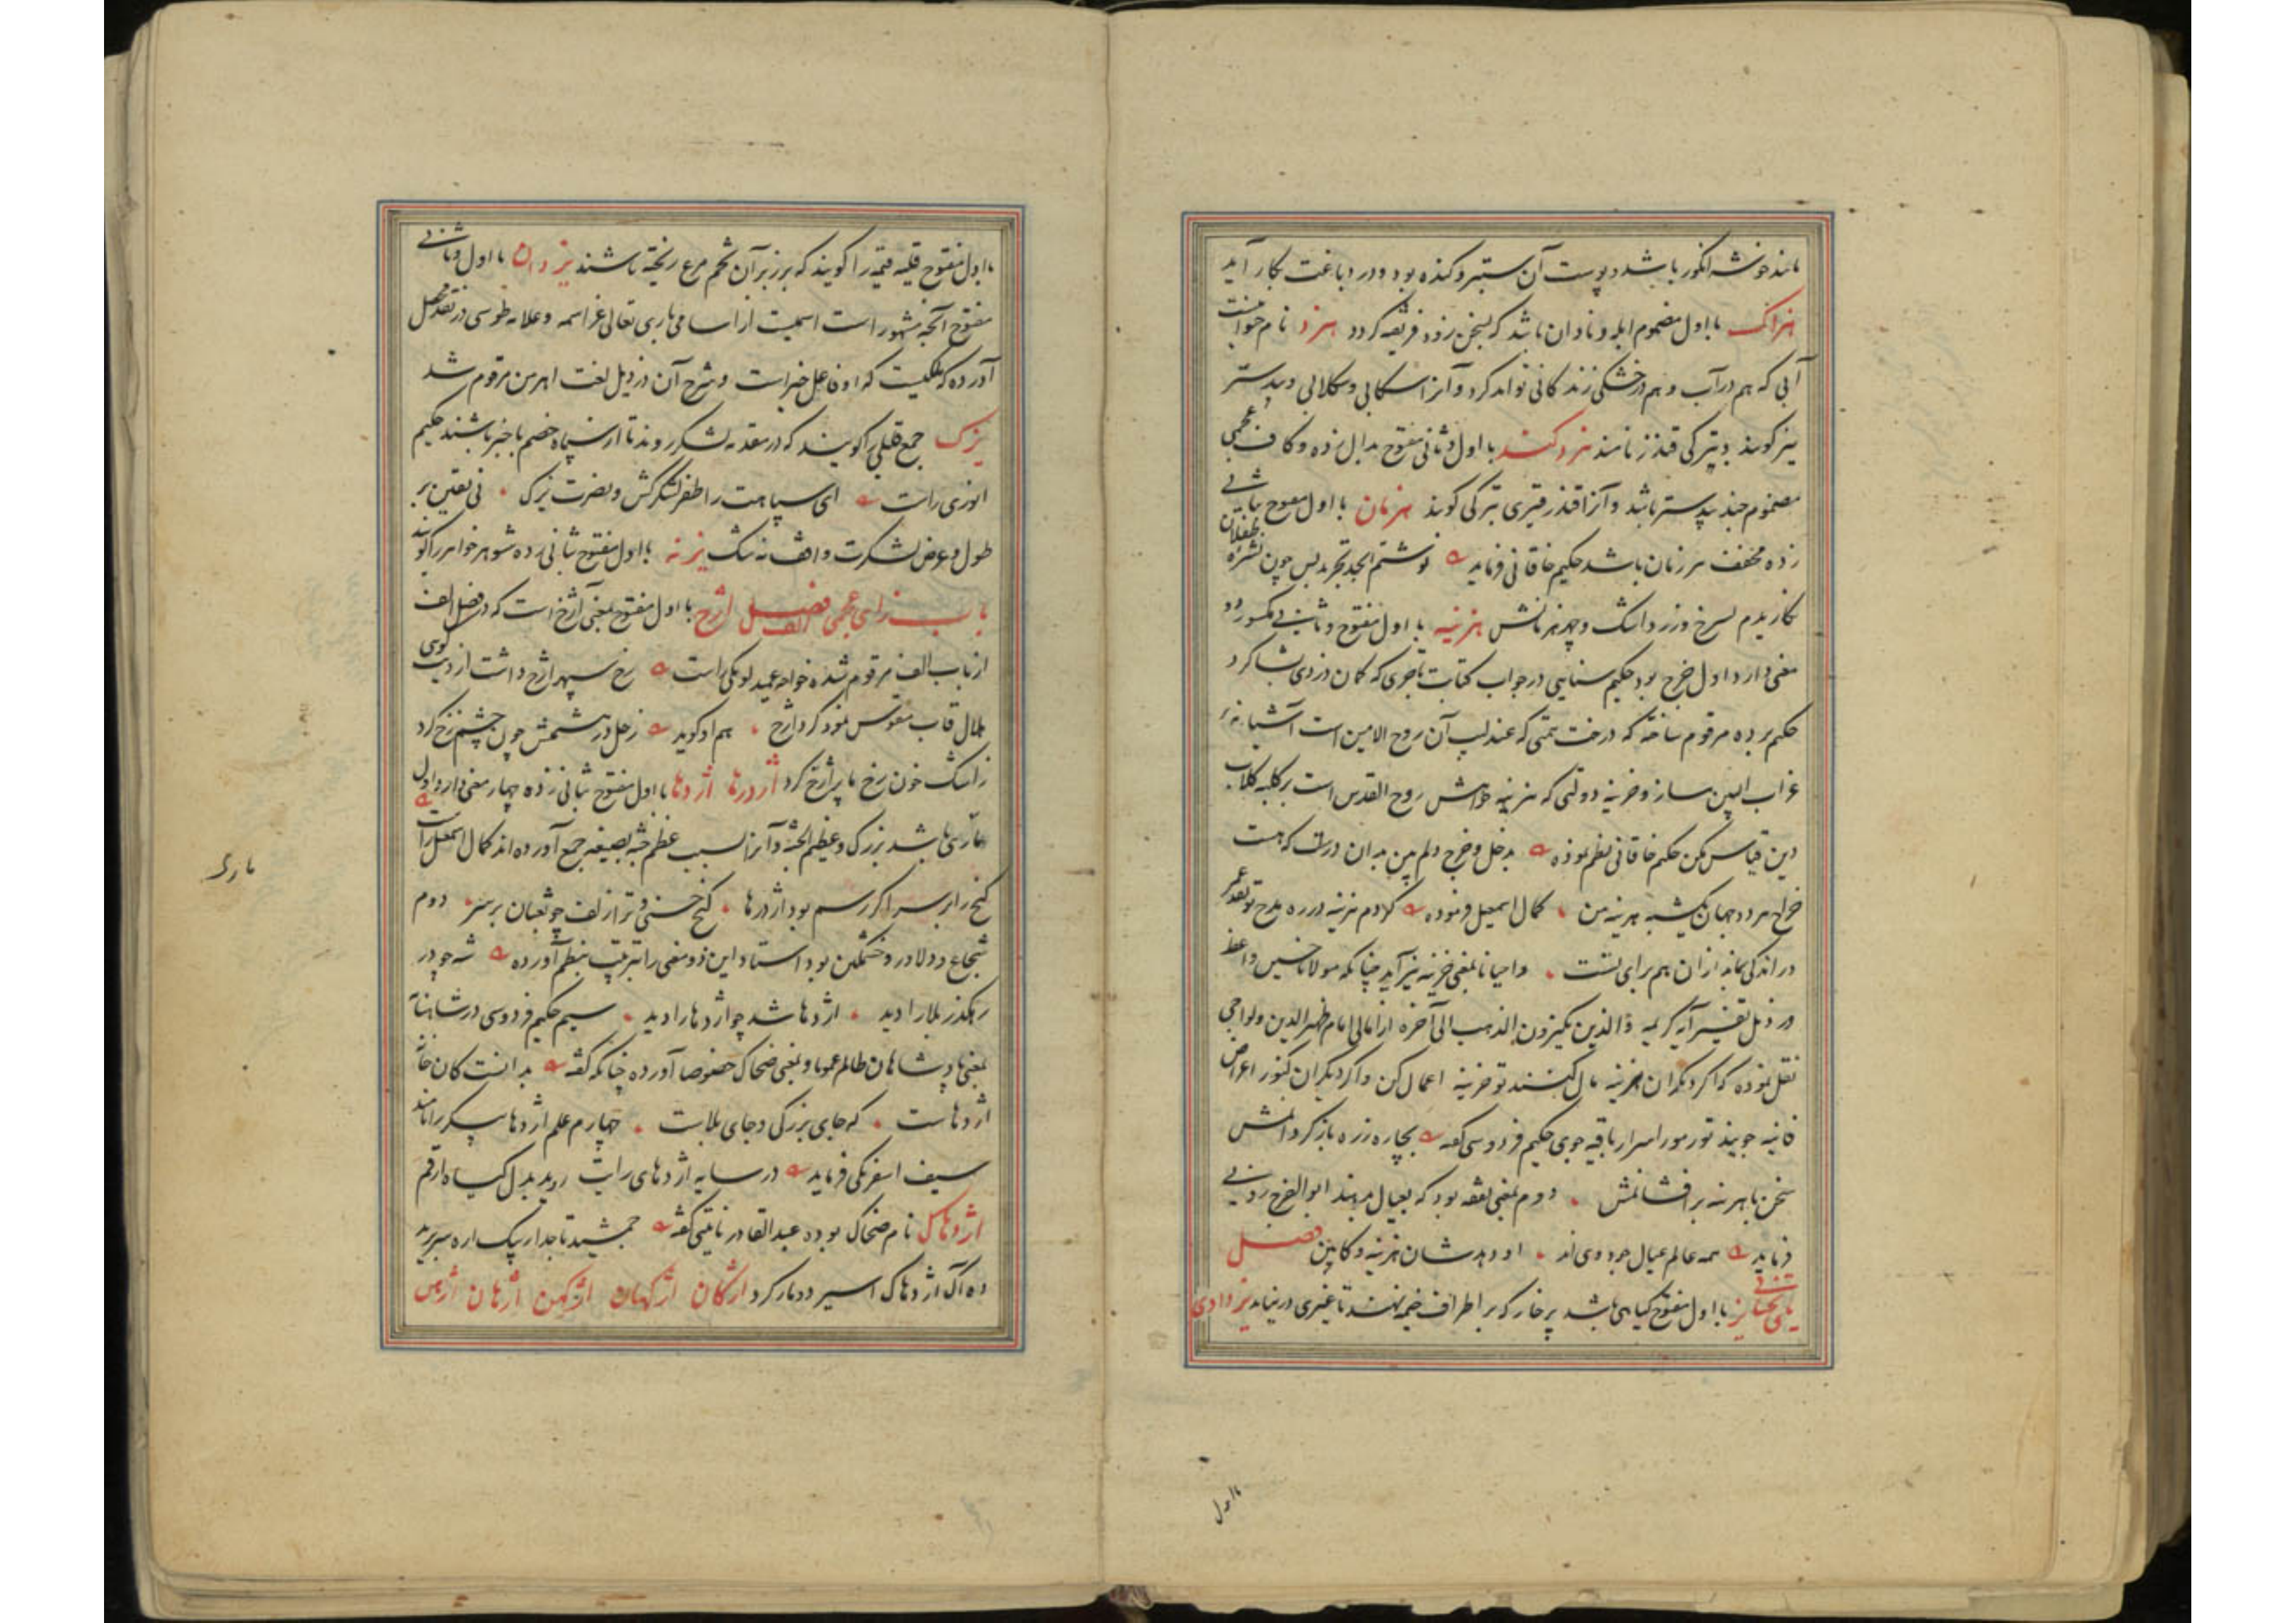 مانند خوشه انگور باشد و پوست آن ستبر و کنده بود و در دباغت بکار آید
هزاک با اول مضموم ابله و نادان باشد که بسخن زود فریفته گردد هزد نام حیوانیست
آبی که هم در آب و هم در خشکی زندگانی تواند کرد و آنرا سکابی و سکلابی و بیدستر
نیز گویند و بترکی قندز نامند هزد کند با اول و ثانی مفتوح بدال زده و کاف عجمی
مضموم جند بیدستر باشد و آنرا قندز قیری بترکی گویند هزمان با اول مفتوح بثانی
زده مخفف هر زمان باشد حکیم خاقانی فرماید نوشتم ابجد تجرید پس چون نشره طفلان
نگاریدم بسرخ و زرد اشک و چهر هزمانش هزینه با اول مفتوح و ثانی مکسور دو
معنی دارد اول خرج بود حکیم سنایی در جواب کتابت تاجری که کان دزدی بشاگرد
حکیم برده مرقوم ساخته که درخت همتی که عندلیب آن روح الامین است آشیانه
غراب البین مساز و خزینه دولتی که هزینه خواهش روح القدس است بر کلبه کلاب
دین قیاس مکن حکیم خاقانی نظم نموده بدخل و خرج دلم بین بدان درست که هست
خراج هر دو جهان یکشبه هزینه من کمال اسمعیل فرموده کردم هزینه در ره مدح تو نقد عمر
در اندکی بماند از آن هم برای تست و احیانا بمعنی خزینه نیز آید چنانکه مولانا حسین واعظ
در ذیل تفسیر آیه کریمه والذین یکنزون الذهب الی آخره از امالی امام ظهیرالدین ولوالجی
نقل نموده که اگر دیگران هزینه مال کنند تو خزینه اعمال کن و اگر دیگران کنوز اعراض
فانیه جویند تو رموز اسرار باقیه جوی حکیم فردوسی گفته بیچاره زره باز گردانمش
سخن با هزینه برافشانمش دوم بمعنی نفقه بود که بعیال دهند ابوالفرج رونی
فرماید همه عالم عیال جود وی اند او دهدشان هزینه و کابین فصل
یای تحتانی یز با اول مفتوح گیاهی باشد پر خار که بر اطراف خیمه نهند تا غیری در نیاید یزدادی
بااول
بااول مفتوح قلیه قیمه را گویند که بر زبر آن تخم مرغ ریخته باشند یزدان با اول و ثانی
مفتوح آنچه مشهور است اسمیست از اسامی باری تعالی عز اسمه و علامه طوسی در نقد محصل
آورده که ملکیست که او فاعل خیر است و شرح آن در ذیل لغت اهرمن مرقوم شد
یزک جمع قلیلی را گویند که در مقدمه لشکر روند تا از سپاه خصم باخبر باشند حکیم
انوری راست ای سپاهت را ظفر لشکرکش و نصرت یزک نی یقین بر
طول و عرض لشکرت واقف نه شک یزنه با اول مفتوح بثانی زده شوهر خواهر را گویند
باب زای عجمی فصل الف اژخ با اول مفتوح بمعنی آژخ است که در فصل الف
از باب الف مرقوم شده خواجه عمید لومکی راست رخ سپهر اژخ داشت از دیت گوی
هلال قاب مقوس نمود کرد اژخ هم او گوید زحل در هشتمش چون چشم نرخ کرد
ز اشک خون رخ ما پر اژخ کرد اژدرها اژدها با اول مفتوح بثانی زده چهار معنی دارد اول
ماری باشد بزرگ و عظیم الجثه و آنرا بسبب عظم جثه بصیغه جمع آورده اند کمال اسمعیل راست
گنج را بر سر اگر رسم بود اژدرها گنج حسنی و تر از زلف چو ثعبان بر سر دوم
شجاع و دلاور و خشمگین بود استاد این دو معنی را بترتیب بنظم آورده شه چو در
رهگذر بلا را دید اژدها شد چو اژدها را دید سیم حکیم فردوسی در شاهنامه
بمعنی پادشاهان ظالم عموما و بمعنی ضحاک خصوصا آورده چنانکه گفته بدانست کان خانه
اژدهاست که جای بزرگی و جای بلاست چهارم علم اژدها پیکر را نامند
سیف اسفرنگی فرماید در سایه اژدهای رایت روید بدل گیاه ارقم
اژدهاک نام ضحاک بوده عبدالقادر نائینی گفته جمشید تاجدار بیک اره سر برید
ده آک اژدهاک اسیر دمار کرد اژکان اژکهان اژکهن اژهان اژهن
ماری